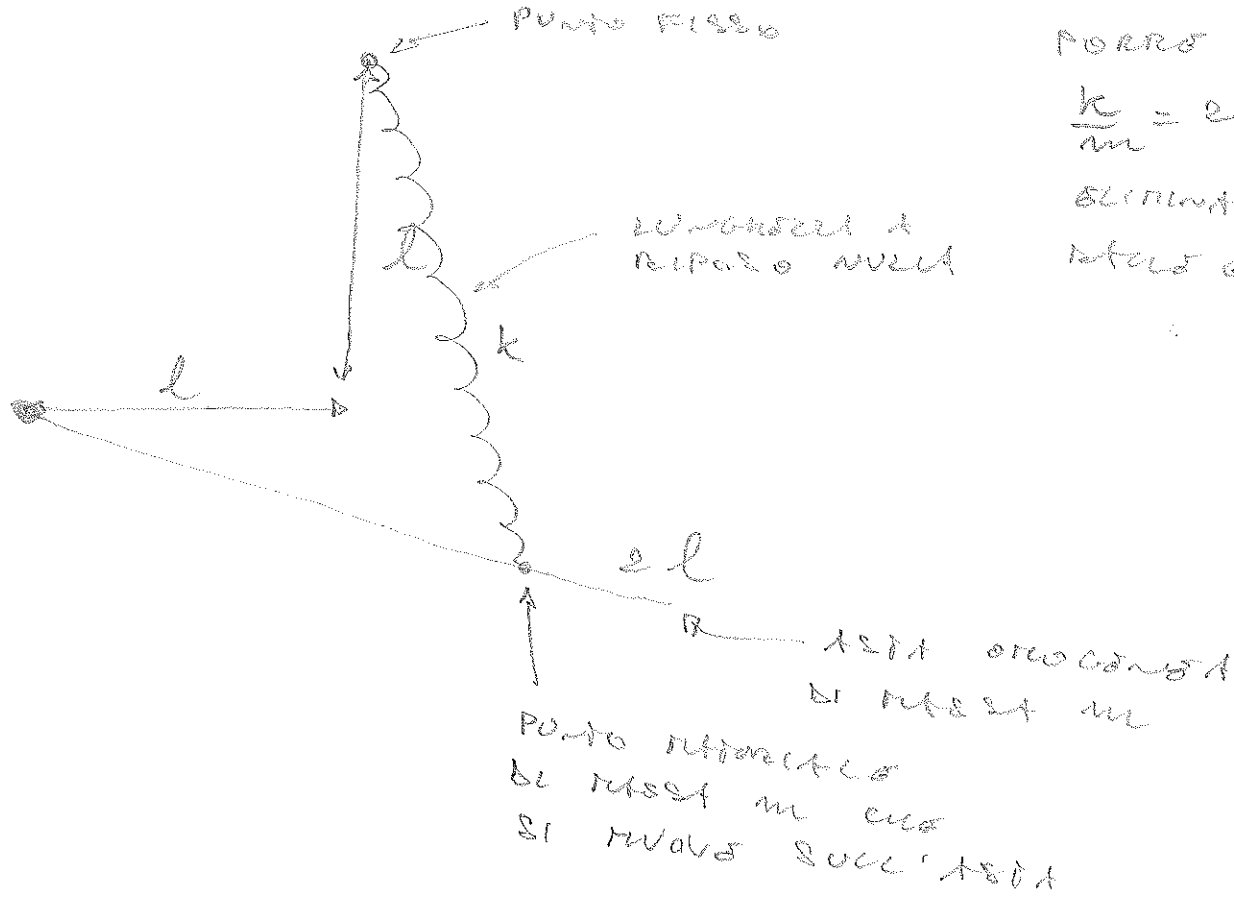 PUNTO FISSO
PORRE
k/m = 2
ELIMINA
l
LUNGHEZZA A
RIPOSO NULLA
k
l
2 l
ASTA OMOGENEA
DI MASSA m
PUNTO MATERIALE
DI MASSA m CHE
SI MUOVE SULL'ASTA